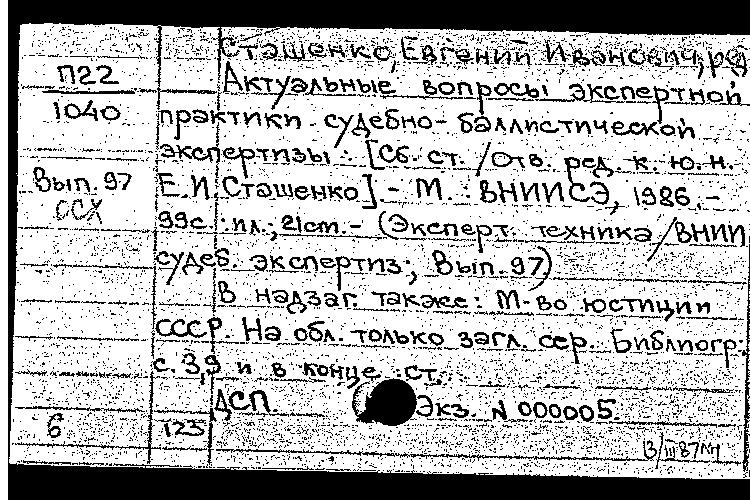 Сташенко, Евгений Иванович, ред
П22
1040
Актуальные вопросы экспертной
практики судебно-баллистической
экспертизы: [Сб. ст. / Отв. ред. к. ю. н.
Вып. 97
ССХ
Е.И. Сташенко]. – М. : ВНИИСЭ, 1986. –
99с. : ил.; 21см. – (Эксперт. техника / ВНИИ
судеб. экспертиз; Вып. 97)
В надзаг. также: М-во юстиции
СССР. На обл. только загл. сер. Библиогр.:
с. 3,9 и в конце ст.
ДСП. Экз. N 000005.
6 123
13/III 87